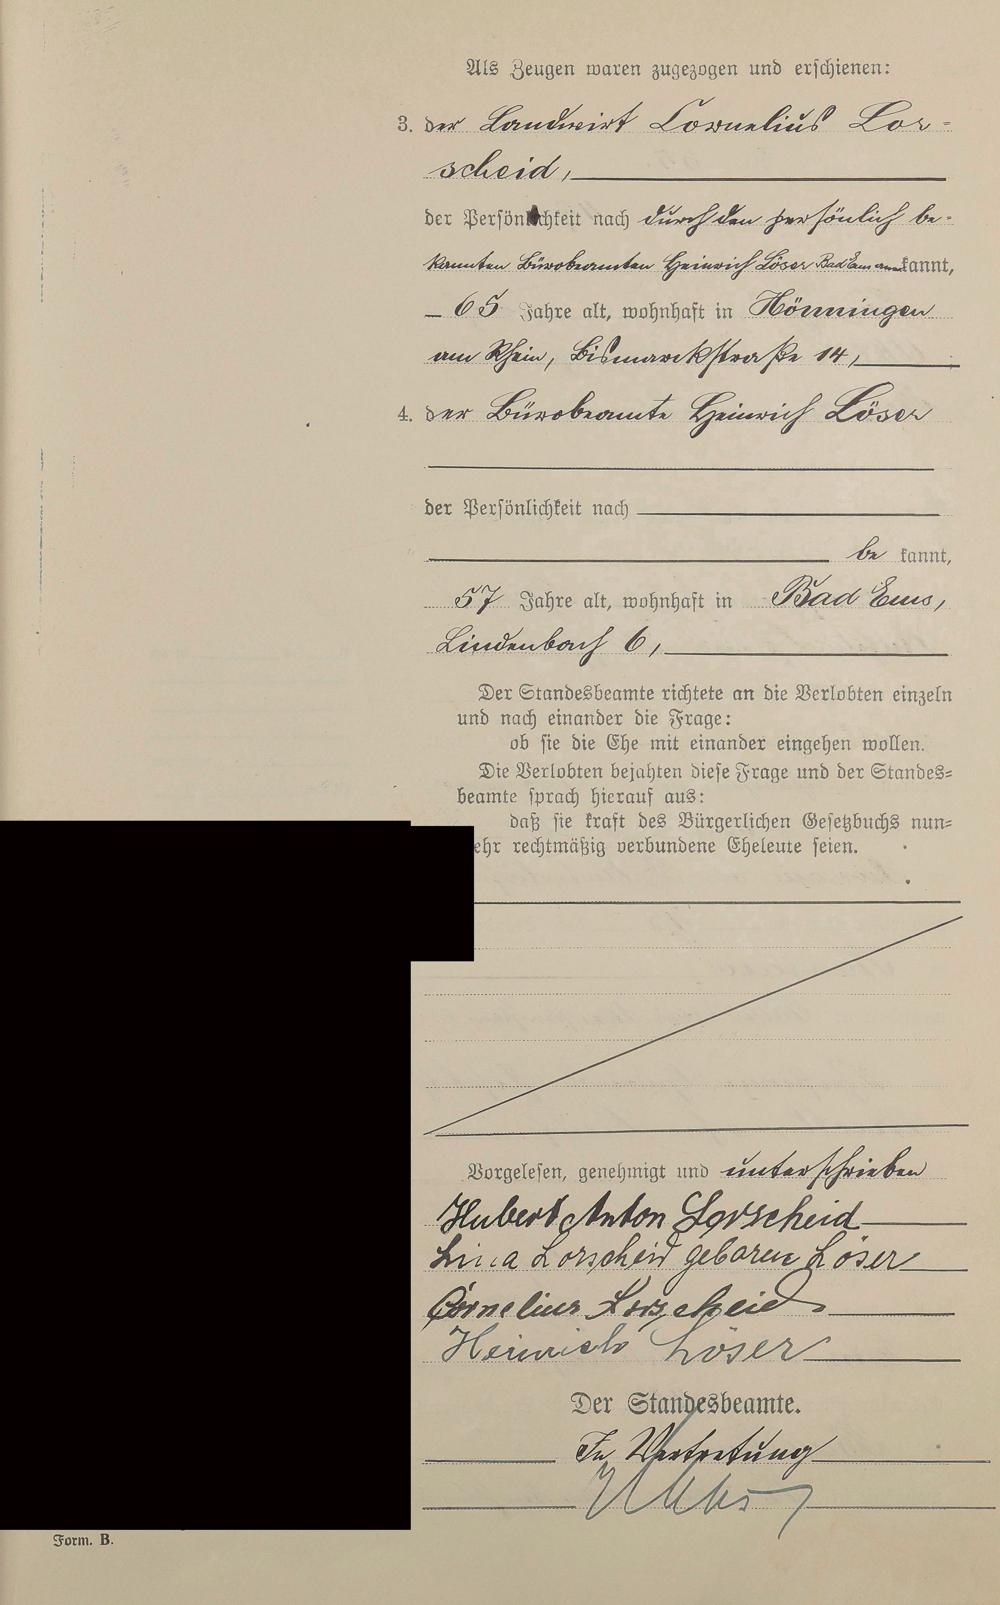 Als Zeugen waren zugezogen und erschienen:
3. der Landwirt Cornelius Lor-
scheid,
der Persönlichkeit nach durch den persönlich be-
kannten Bürobeamten Heinrich Löser Bad Ems anerkannt,
65 Jahre alt, wohnhaft in Hönningen
am Rhein, Bismarckstraße 14,
4. der Bürobeamte Heinrich Löser
der Persönlichkeit nach
be kannt,
57 Jahre alt, wohnhaft in Bad Ems,
Lindenbach 6,
Der Standesbeamte richtete an die Verlobten einzeln
und nach einander die Frage:
ob sie die Ehe mit einander eingehen wollen.
Die Verlobten bejahten diese Frage und der Standes-
beamte sprach hierauf aus:
daß sie kraft des Bürgerlichen Gesetzbuchs nun-
ehr rechtmäßig verbundene Eheleute seien.
Vorgelesen, genehmigt und unterschrieben
Hubert Anton Lorscheid
Lina Lorscheid geborene Löser
Cornelius Lorscheid
Heinrich Löser
Der Standesbeamte.
In Vertretung
Form. B.